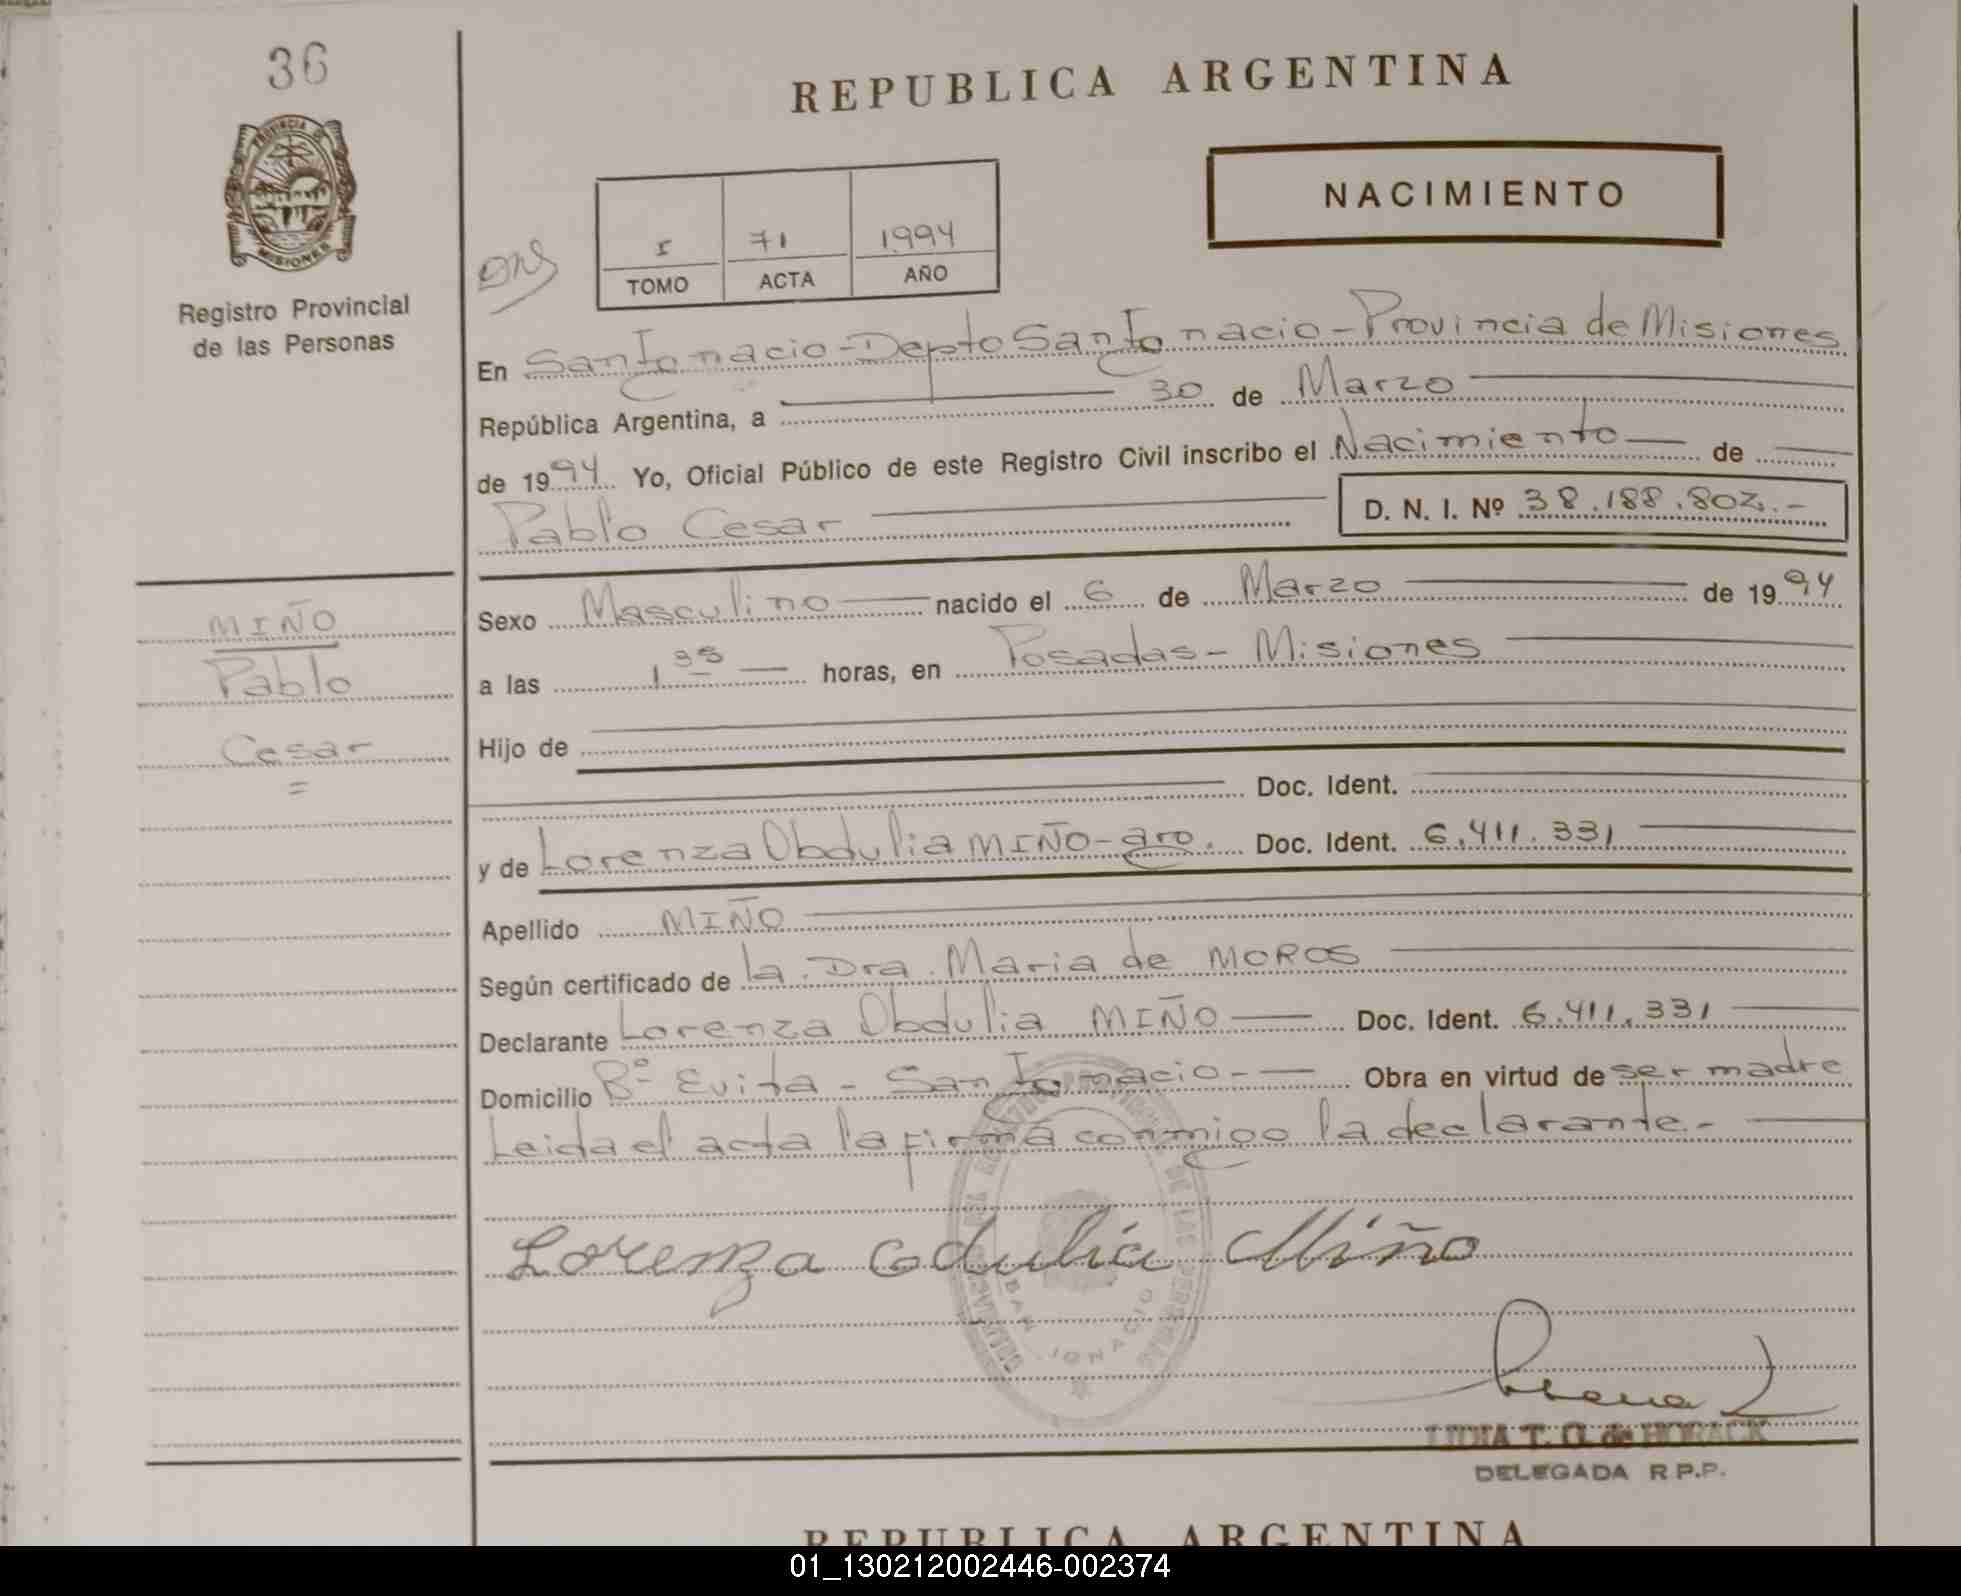 36
REPUBLICA ARGENTINA
PROVINCIA DE
MISIONES
NACIMIENTO
I 71 1994
TOMO ACTA AÑO
Registro Provincial
de las Personas
En San Ignacio - Depto San Ignacio - Provincia de Misiones
República Argentina, a 30 de Marzo
de 1994 Yo, Oficial Público de este Registro Civil inscribo el Nacimiento de
Pablo Cesar D. N. I. Nº 38.188.802.-
Sexo Masculino nacido el 6 de Marzo de 1994
a las 1 35 horas, en Posadas - Misiones
MIÑO
Pablo
Cesar
=
Hijo de
Doc. Ident.
y de Lorenza Obdulia MIÑO - arg. Doc. Ident. 6.411.331
Apellido MIÑO
Según certificado de la Dra. Maria de MOROS
Declarante Lorenza Obdulia MIÑO Doc. Ident. 6.411.331
Domicilio Bº Evita - San Ignacio - Obra en virtud de ser madre
Leida el acta la firma conmigo la declarante.-
Lorenza Odulia Miño
DE LAS PERSONAS
SAN IGNACIO
LIDIA T. G. de HORACK
DELEGADA R.P.P.
REPUBLICA ARGENTINA
01_130212002446-002374